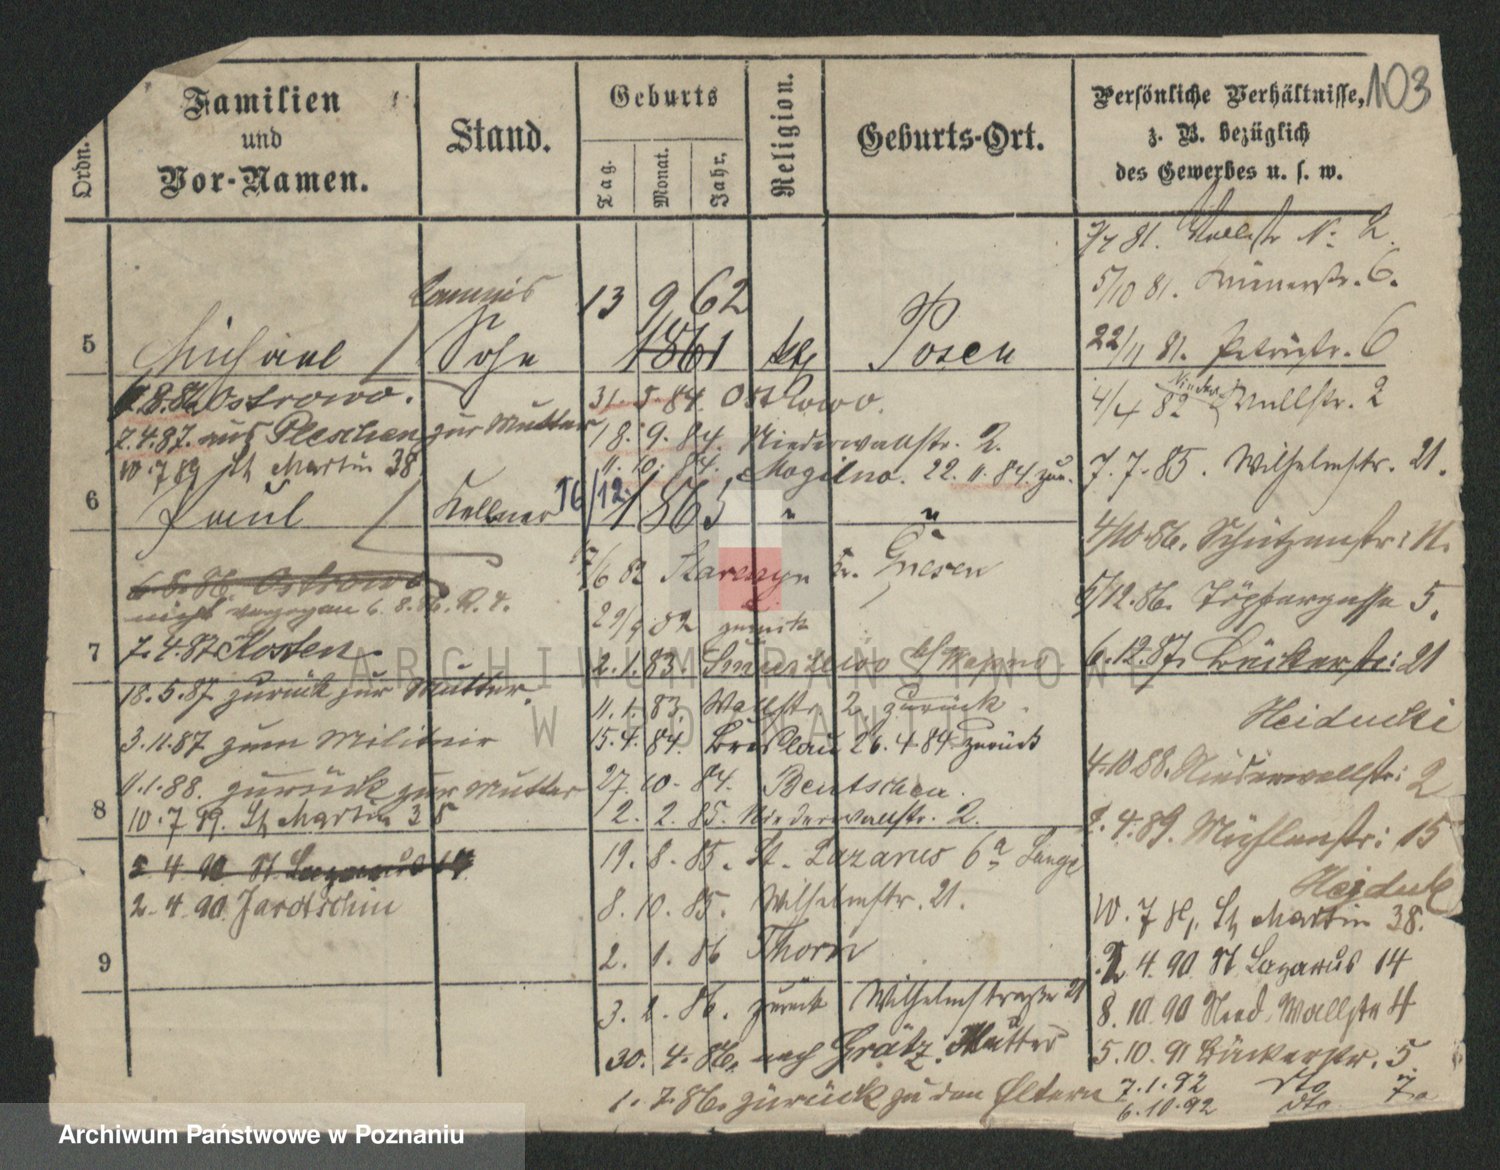 103
Ordn.
Familien
und
Vor-Namen.
Stand.
Geburts
Tag.
Monat.
Jahr.
Religion.
Geburts-Ort.
Persönliche Verhältnisse,
z. B. bezüglich
des Gewerbes u. s. w.
5
Michael
Sohn
13 9 62
1861
kth
Posen
8.86 Ostrowo.
2.4.87. aus Pleschen zur Mutter
10.7 89 St Martin 38
6
Paul
Kellner
16/12.
1865
"
"
6.8.86. Ostrowo
nicht 6.8.86.
7
7.4.87 Kosten.
18.5.87 zurück zur Mutter.
3.11.87 zum Militair
1.1.88. zurück zur Mutter
8
10.7 89. St Martin 38
2 4 90 St Lazarus 14
2.4.90 Jarotschin
9
31.5.84. Ostrowo.
18.9.84. Niederwallstr. 2.
11.10.84. Mogilno. 22.11.84. zur.
/6 82 b. Gnesen
29/9 82 zurück
2.1.83.
11.1.83. Wallstr 2 zurück.
15.4.84. Breslau 26.4 84 zurück
27.10.84. Bentschen.
2.2.85. Niederwallstr. 2.
19.8.85. St. Lazarus 6a Lange
8.10.85. Wilhelmstr. 21.
2.1.86 Thorn
3.2.86. zurück Wilhelmstraße 21
30.4.86. nach Grätz. Mutter
1.7.86. zurück zu den Eltern
7/7 81. Wallstr No 2.
5/10 81. 6.
22/11 81. Petristr. 6
4/4 82 Nieder Wallstr. 2
7.7.85. Wilhelmstr. 21.
4/10.86. Schützenstr: 11.
5/12.86. Töpfergasse 5.
6.12.87. Bäckerstr: 21
Heiducki
4.10.88. Niederwallstr: 2
2.4.89. Mühlenstr: 15
Heiducki
10.7 89. St Martin 38.
2 4.90. St Lazarus 14
8.10.90 Nied. Wallstr 4
5.10.91 Bäckerstr. 5.
7.1.92 dto 7a
6.10.92 dto
ARCHIWUM PAŃSTWOWE
W POZNANIU
Archiwum Państwowe w Poznaniu